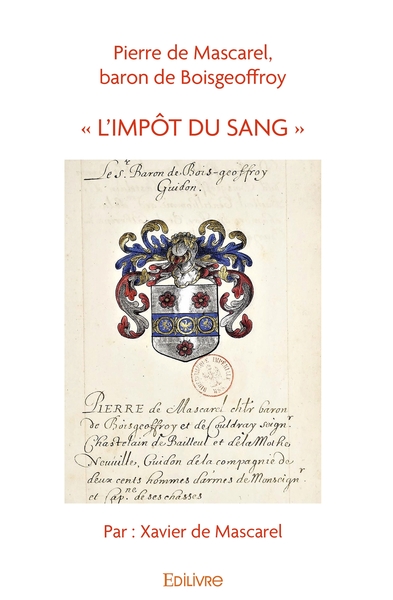 Pierre de Mascarel,
baron de Boisgeoffroy
« L’IMPÔT DU SANG »
Le sr. Baron de Bois-geoffroy
Guidon.
PIERRE de Mascarel
de Boisgeoffroy et de Couldray seignr
Chastelain de Bailleul et de la Mothe
Neuuille, Guidon de la compagnie de
deux cents hommes d'armes de Monseignr
et Capne. de ses chasses
Par : Xavier de Mascarel
EDILIVRE